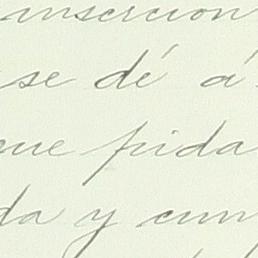 inscrcion
se dé á
que pida
da y cum